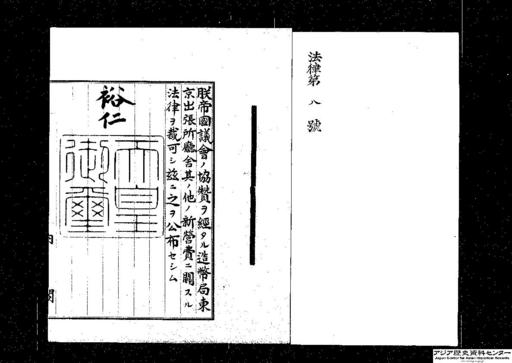 法律第八號
朕帝國議會ノ協贊ヲ經タル造幣局東
京出張所廳舍其ノ他ノ新營費ニ關スル
法律ヲ裁可シ茲ニ之ヲ公布セシム
裕仁
天皇
御璽
内閣
アジア歴史資料センター
Japan Center for Asian Historical Records